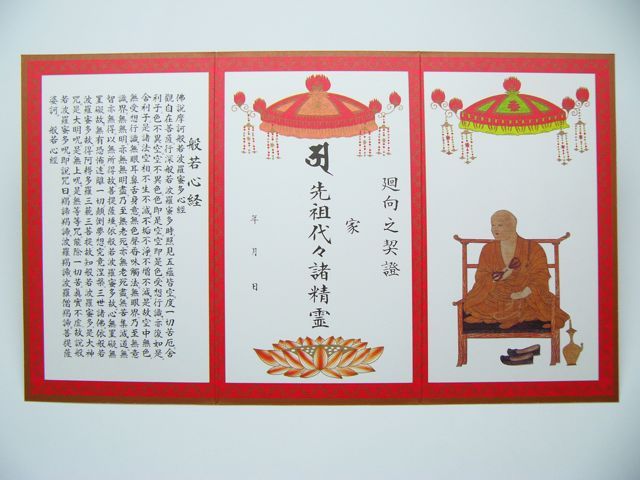 廻向之契證
家
先祖代々諸精靈
年 月 日
般若心経
佛說摩訶般若波羅蜜多心経
觀自在菩薩行深般若波羅蜜多時照見五蘊皆空度一切苦厄舍
利子色不異空空不異色色即是空空即是色受想行識亦復如是
舍利子是諸法空相不生不滅不垢不淨不增不減是故空中無色
無受想行識無眼耳鼻舌身意無色聲香味觸法無眼界乃至無意
識界無無明亦無無明盡乃至無老死亦無老死盡無苦集滅道無
智亦無得以無所得故菩提薩埵依般若波羅蜜多故心無罣礙無
罣礙故無有恐怖遠離一切顛倒夢想究竟涅槃三世諸佛依般若
波羅蜜多故得阿耨多羅三藐三菩提故知般若波羅蜜多是大神
呪是大明呪是無上呪是無等等呪能除一切苦真實不虛故說般
若波羅蜜多呪即說呪曰羯諦羯諦波羅羯諦波羅僧羯諦菩提薩
婆訶 般若心経